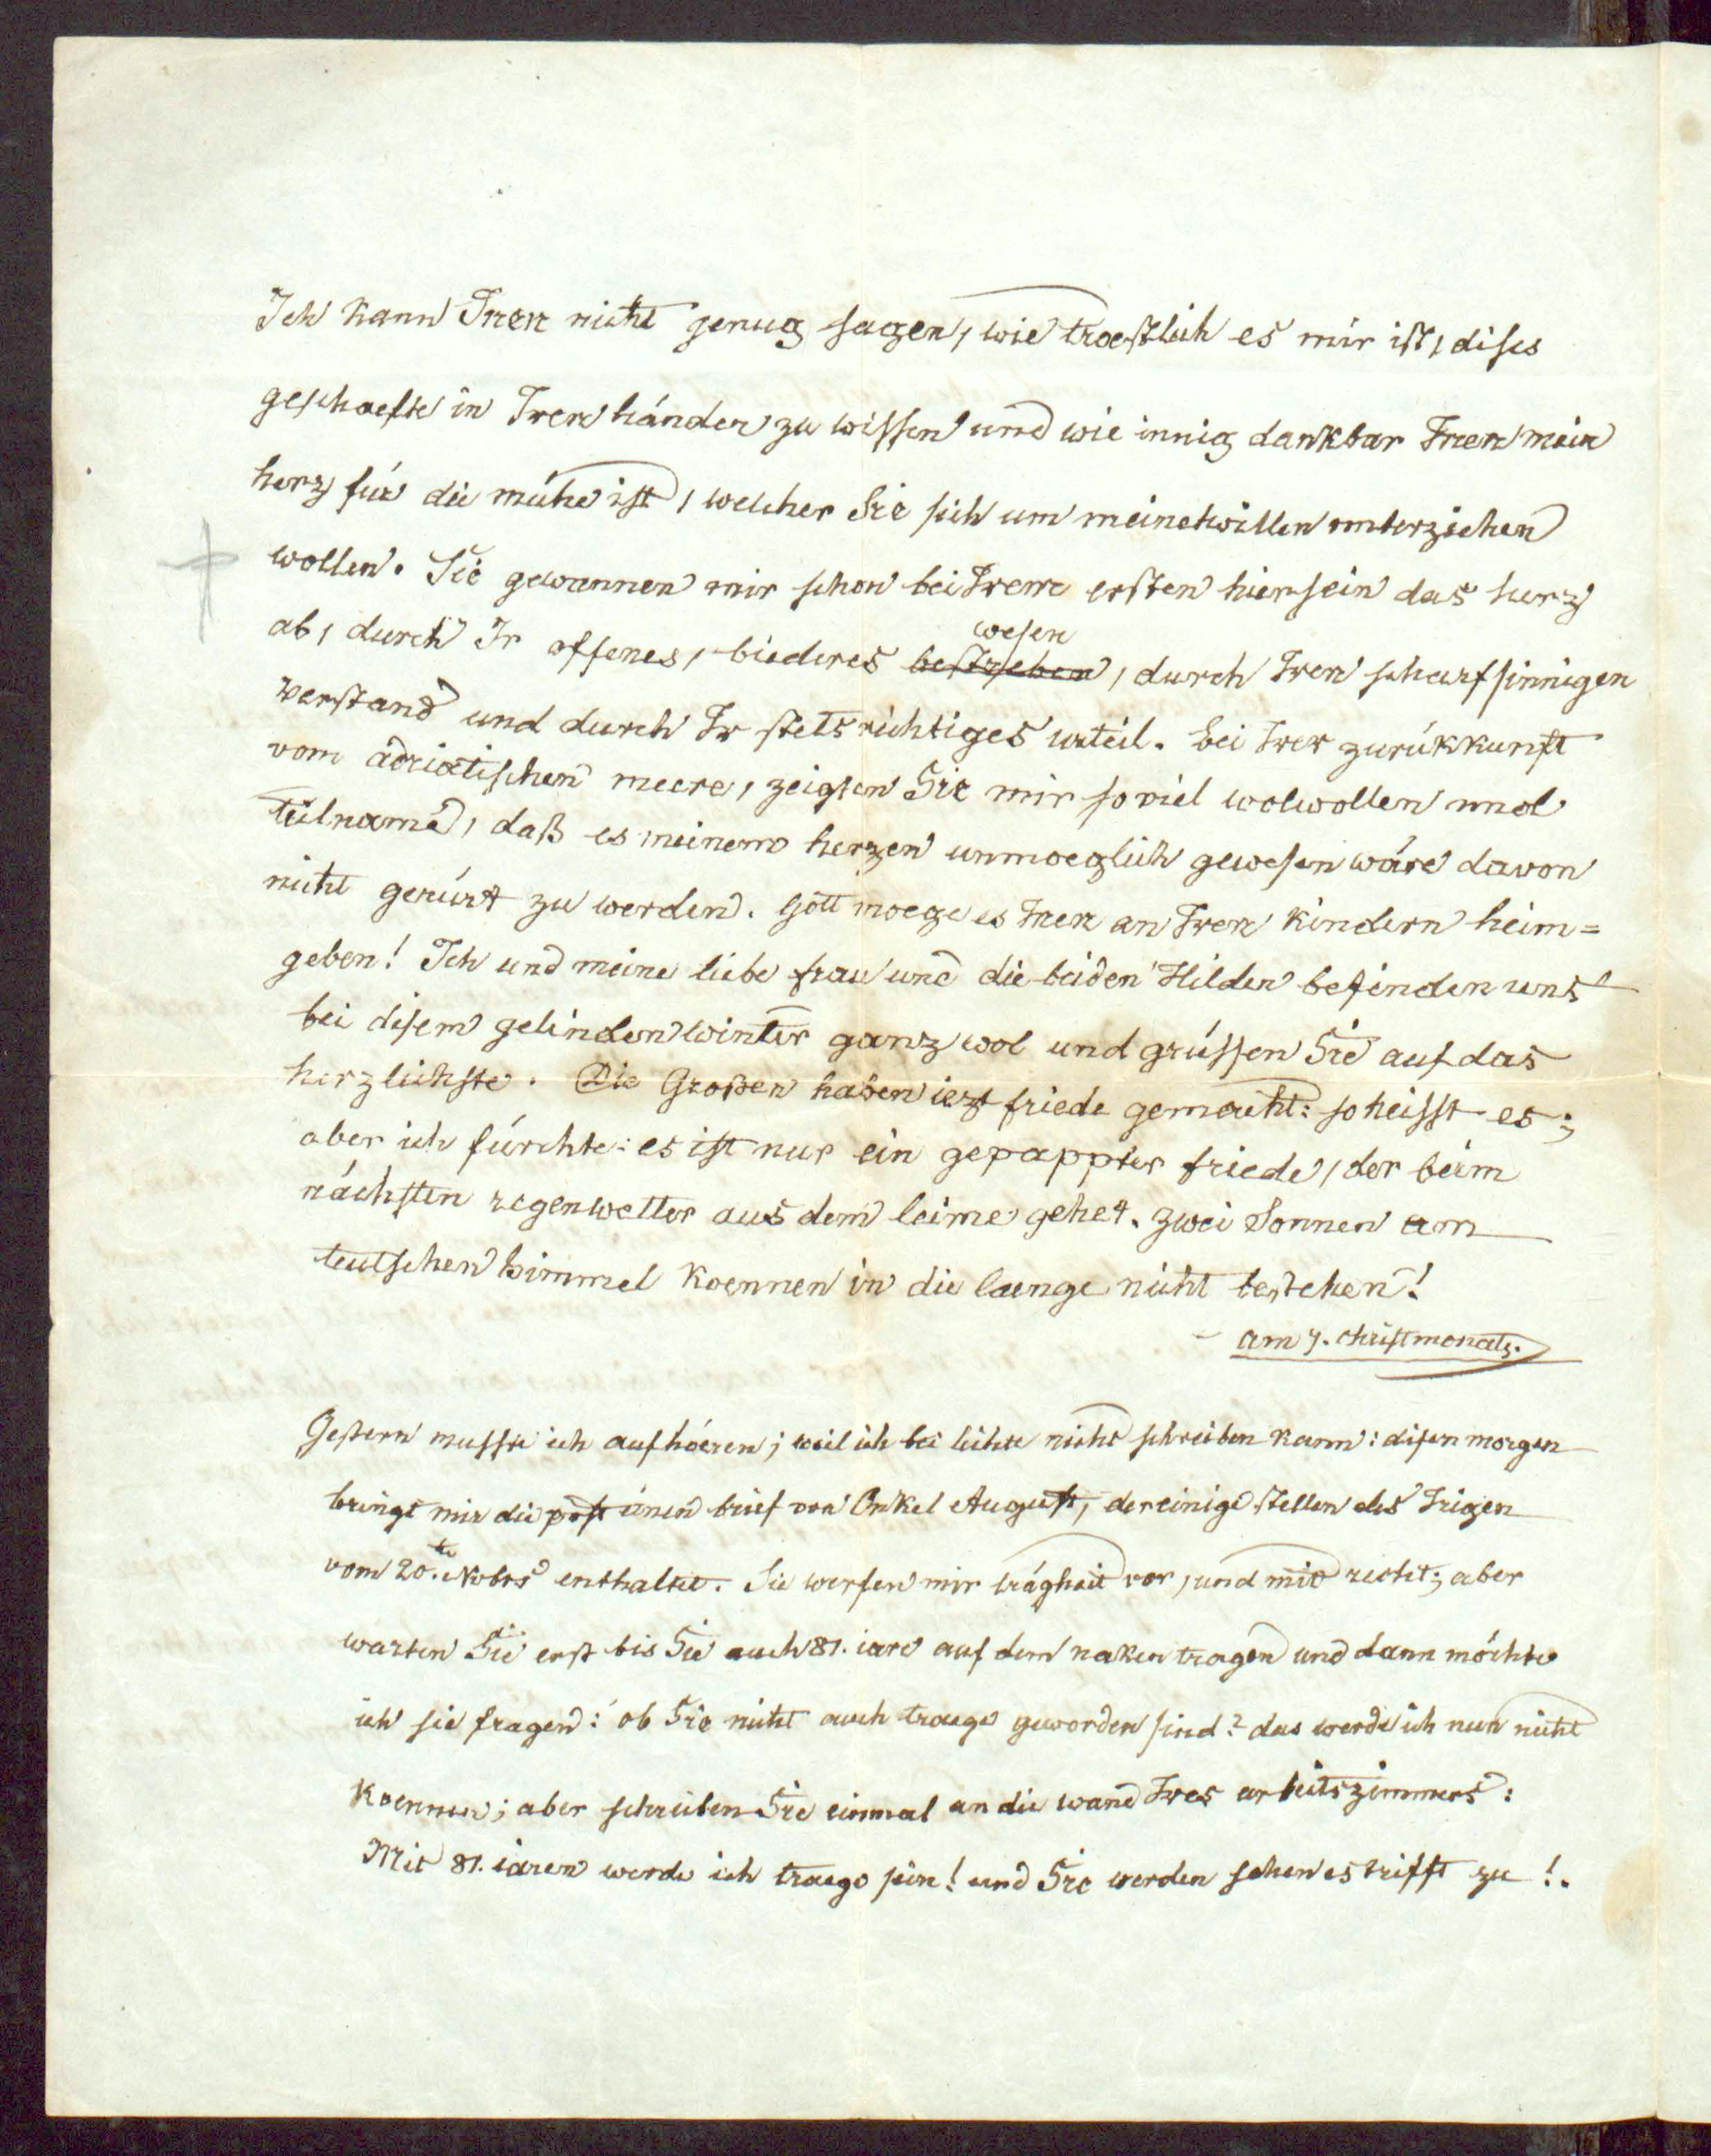 Ich kann Inen nicht genug sagen, wie troestlich es mir ist, dises
geschaefte in Iren händen zu wissen und wie innig dankbar Inen mein
herz für die mühe ist, welcher Sie sich um meinetwillen unterziehen
wollen. Sie gewannen mir schon bei Irem ersten hiersein das herz
wesen
ab, durch Ir offenes, biederes bestreben, durch Iren scharfsinnigen
verstand und durch Ir stets richtiges urteil. bei Irer zurükkunft
vom adriatischen meere, zeigten Sie mir so viel wolwollen und
teilname, daß es meinem herzen unmoeglich gewesen wäre davon
nicht gerürt zu werden. Gott moege es Inen an Iren kindern heim=
geben! Ich und meine liebe frau und die beiden Hilden befinden uns
bei disem gelinden winter ganz wol und grüssen Sie auf das
herzlichste. Die Großen haben iezt friede gemacht: so heisst es;
aber ich fürchte: es ist nur ein gepappter friede, der beim
nächsten regenwetter aus dem leime gehet. zwei Sonnen am
teutschen himmel koennen in die laenge nicht bestehen!
am 7. christmonats.
Gestern musste ich aufhoeren; weil ich bei lichte nicht schreiben kann: disen morgen
bringt mir die post einen brief von Onkel August, der einige stellen des Irigen
vom 20.te Nobrs enthaltet. Sie werfen mir trägheit vor, und mit recht; aber
warten Sie erst bis Sie auch 81. iare auf dem naken tragen und dann möchte
ich sie fragen: ob Sie nicht auch traege geworden sind? das werde ich nun nicht
koennen; aber schreiben Sie einmal an die wand Ires arbeitszimmers:
Mit 81. iaren werde ich traege sein! und Sie werden sehen es trifft zu!.